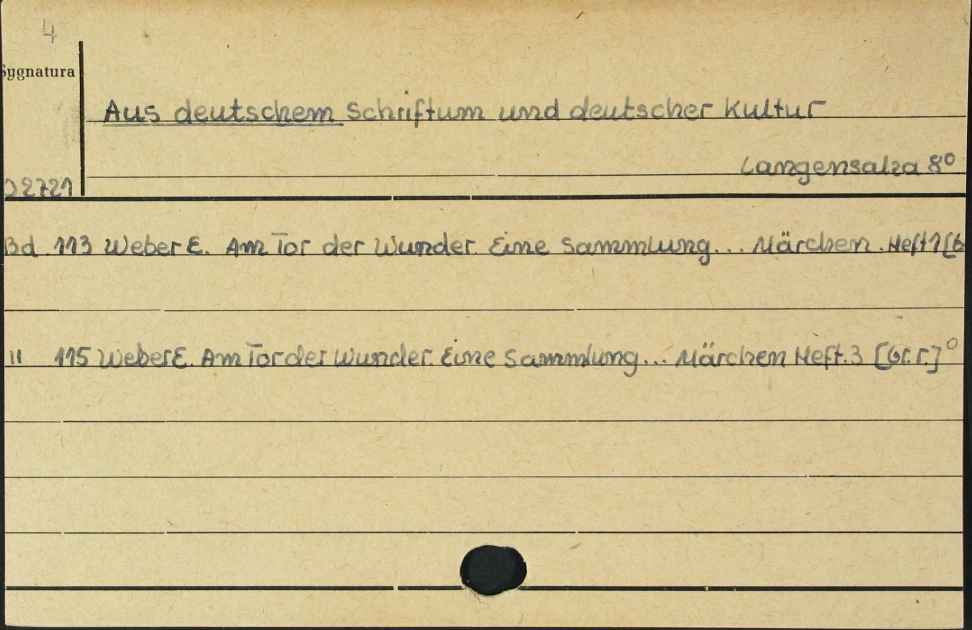 4
Sygnatura
Aus deutschem Schriftum und deutscher Kultur
Langensalza 8°
2721
Bd. 113 Weber E. Am Tor der Wunder. Eine Sammlung... Märchen. Heft 1 [b
" 115 Weber E. Am Tor der Wunder. Eine Sammlung... Märchen Heft. 3 [b.r.]°